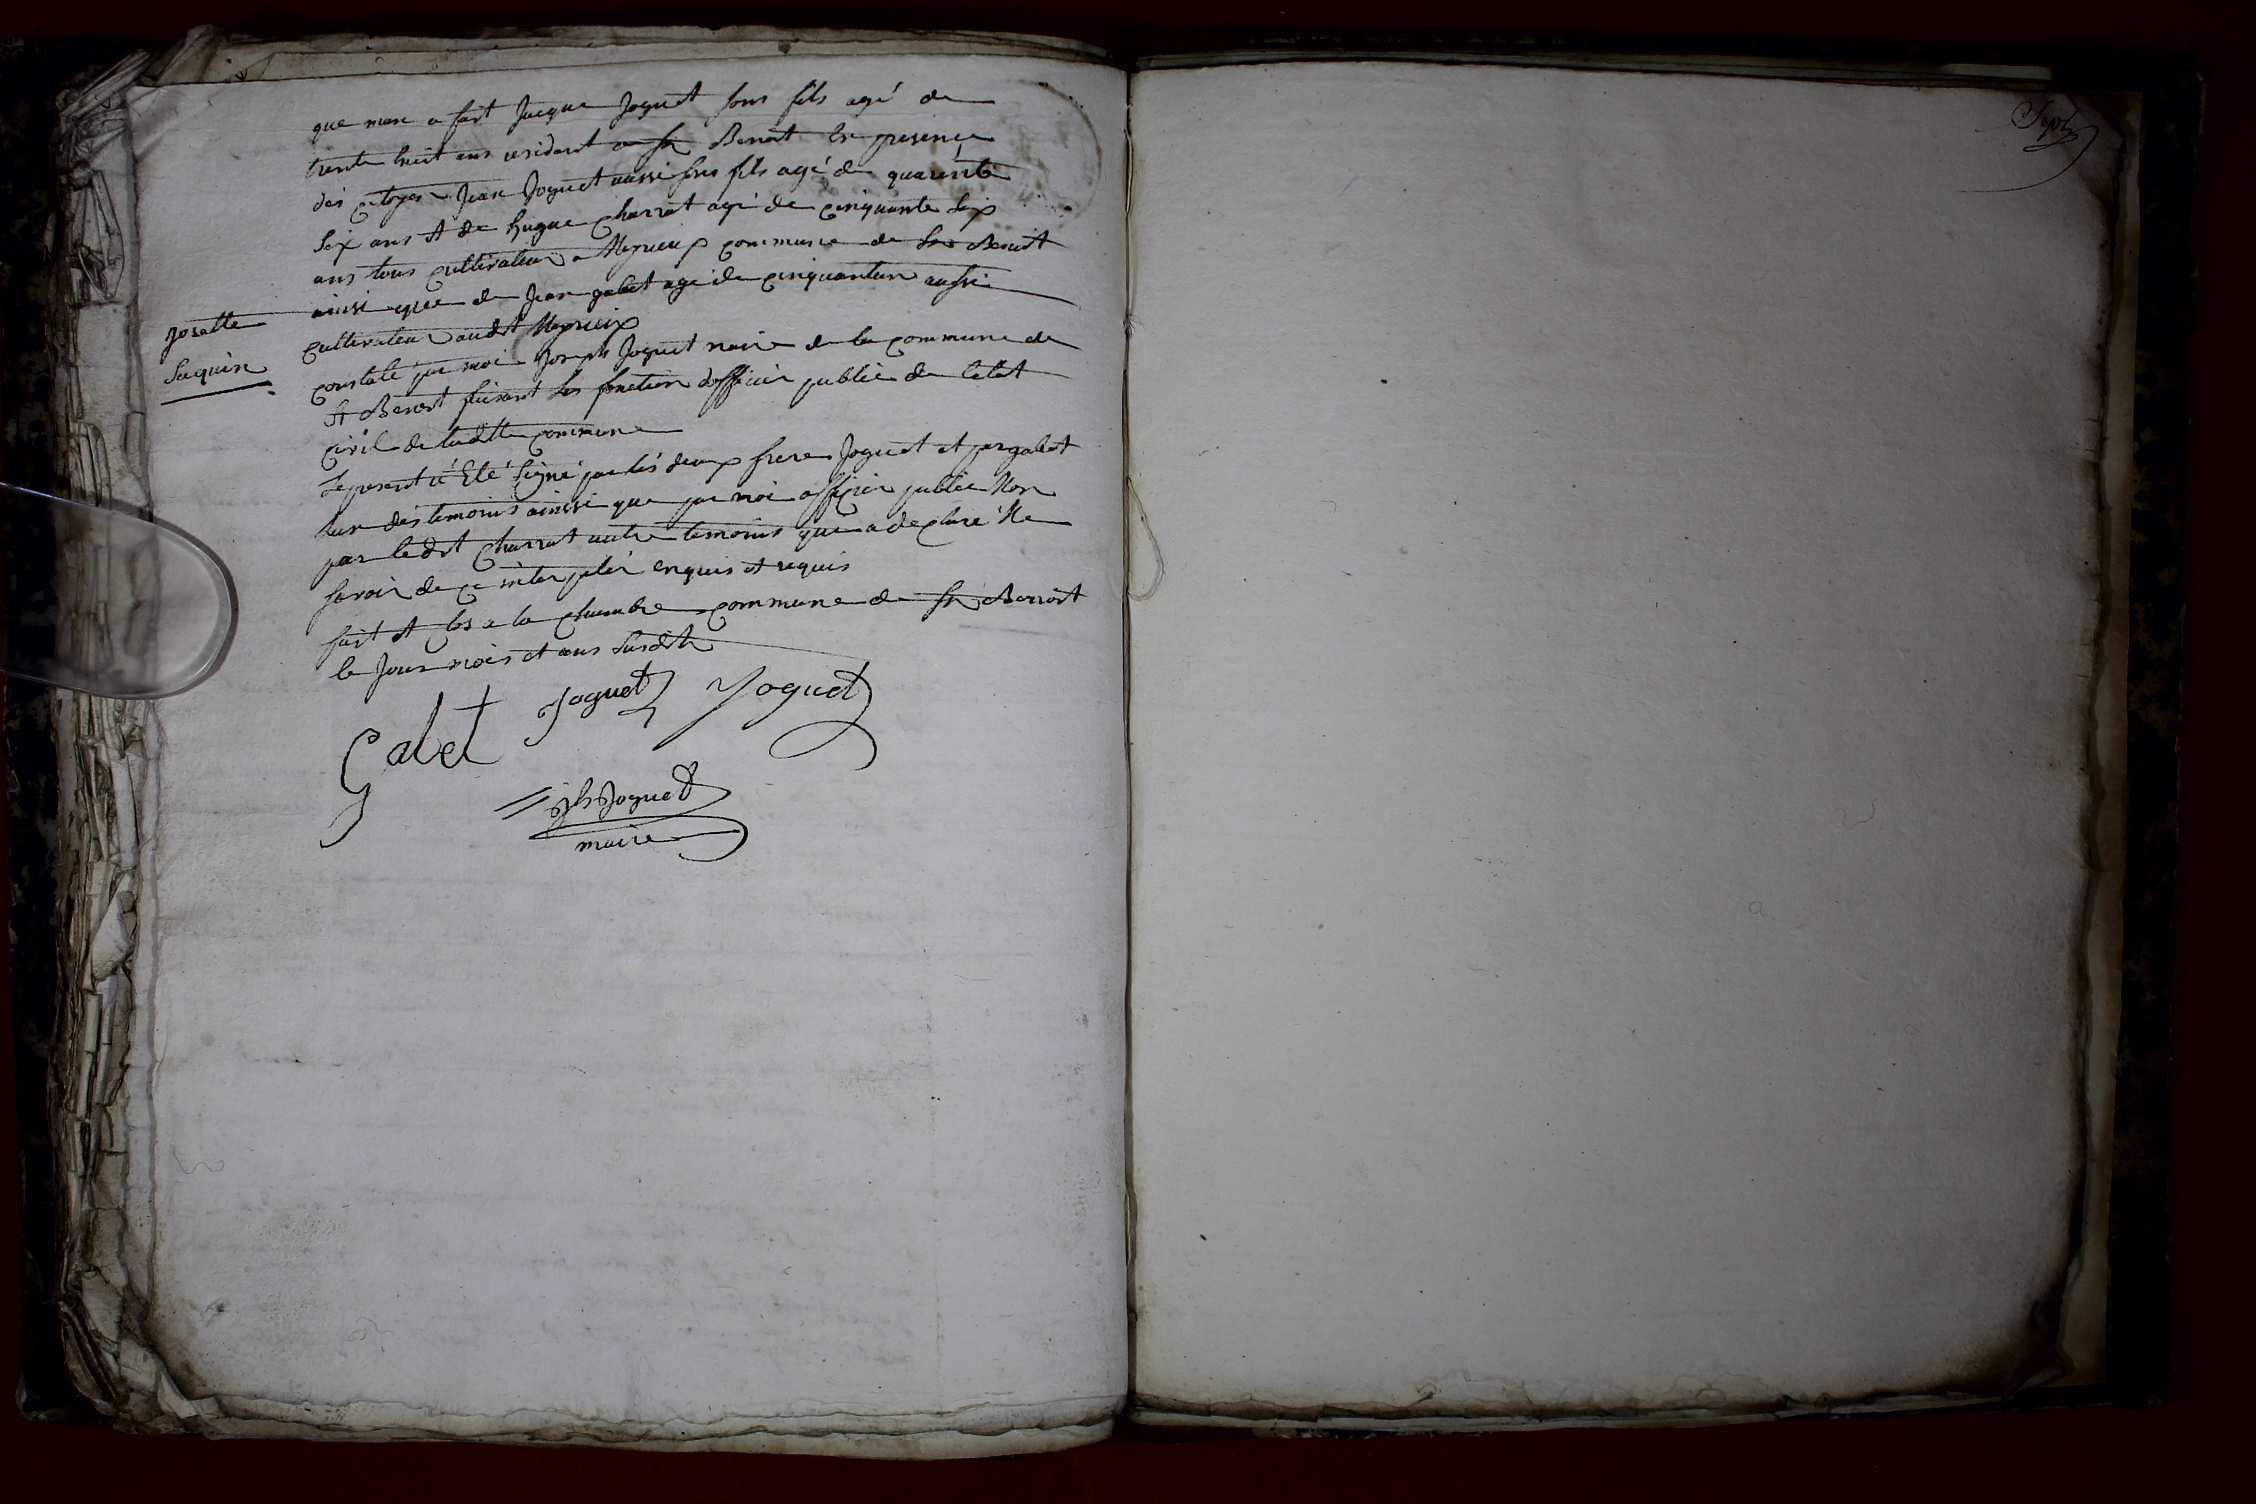 Sept
que men a fait Jacque Joguet sons fils agé de
trente huit ans residant a St Benoit En presence
des citoyen Jean Joguet aussi sons fils agé de quarente
Six ans et de hugue Charrat agé de cinquante six
ans tous cultivateur a Meyrieux commune de St Benoit
ainsi que de Jean galet agé de cinquanteun aussi
cultivateur audit Meyrieux
Josette
Suquin
constaté par moi Joseph Joguet maire de la commune de
St Benoit faisant les fonction d'officier public de letat
civil de laditte commune
Le present a Eté Signé par les deux frere Joguet et par galet
lun des temoins ainssi que par moi officier public Non
par ledit Charrat autre temoins que a declaré Ne
savoir de ce interpellé enquis et requis
fait et clos a la chambre commune de St Benoit
le Jour mois et ans susdit
Galet Joguet Joguet
Jh Joguet
maire